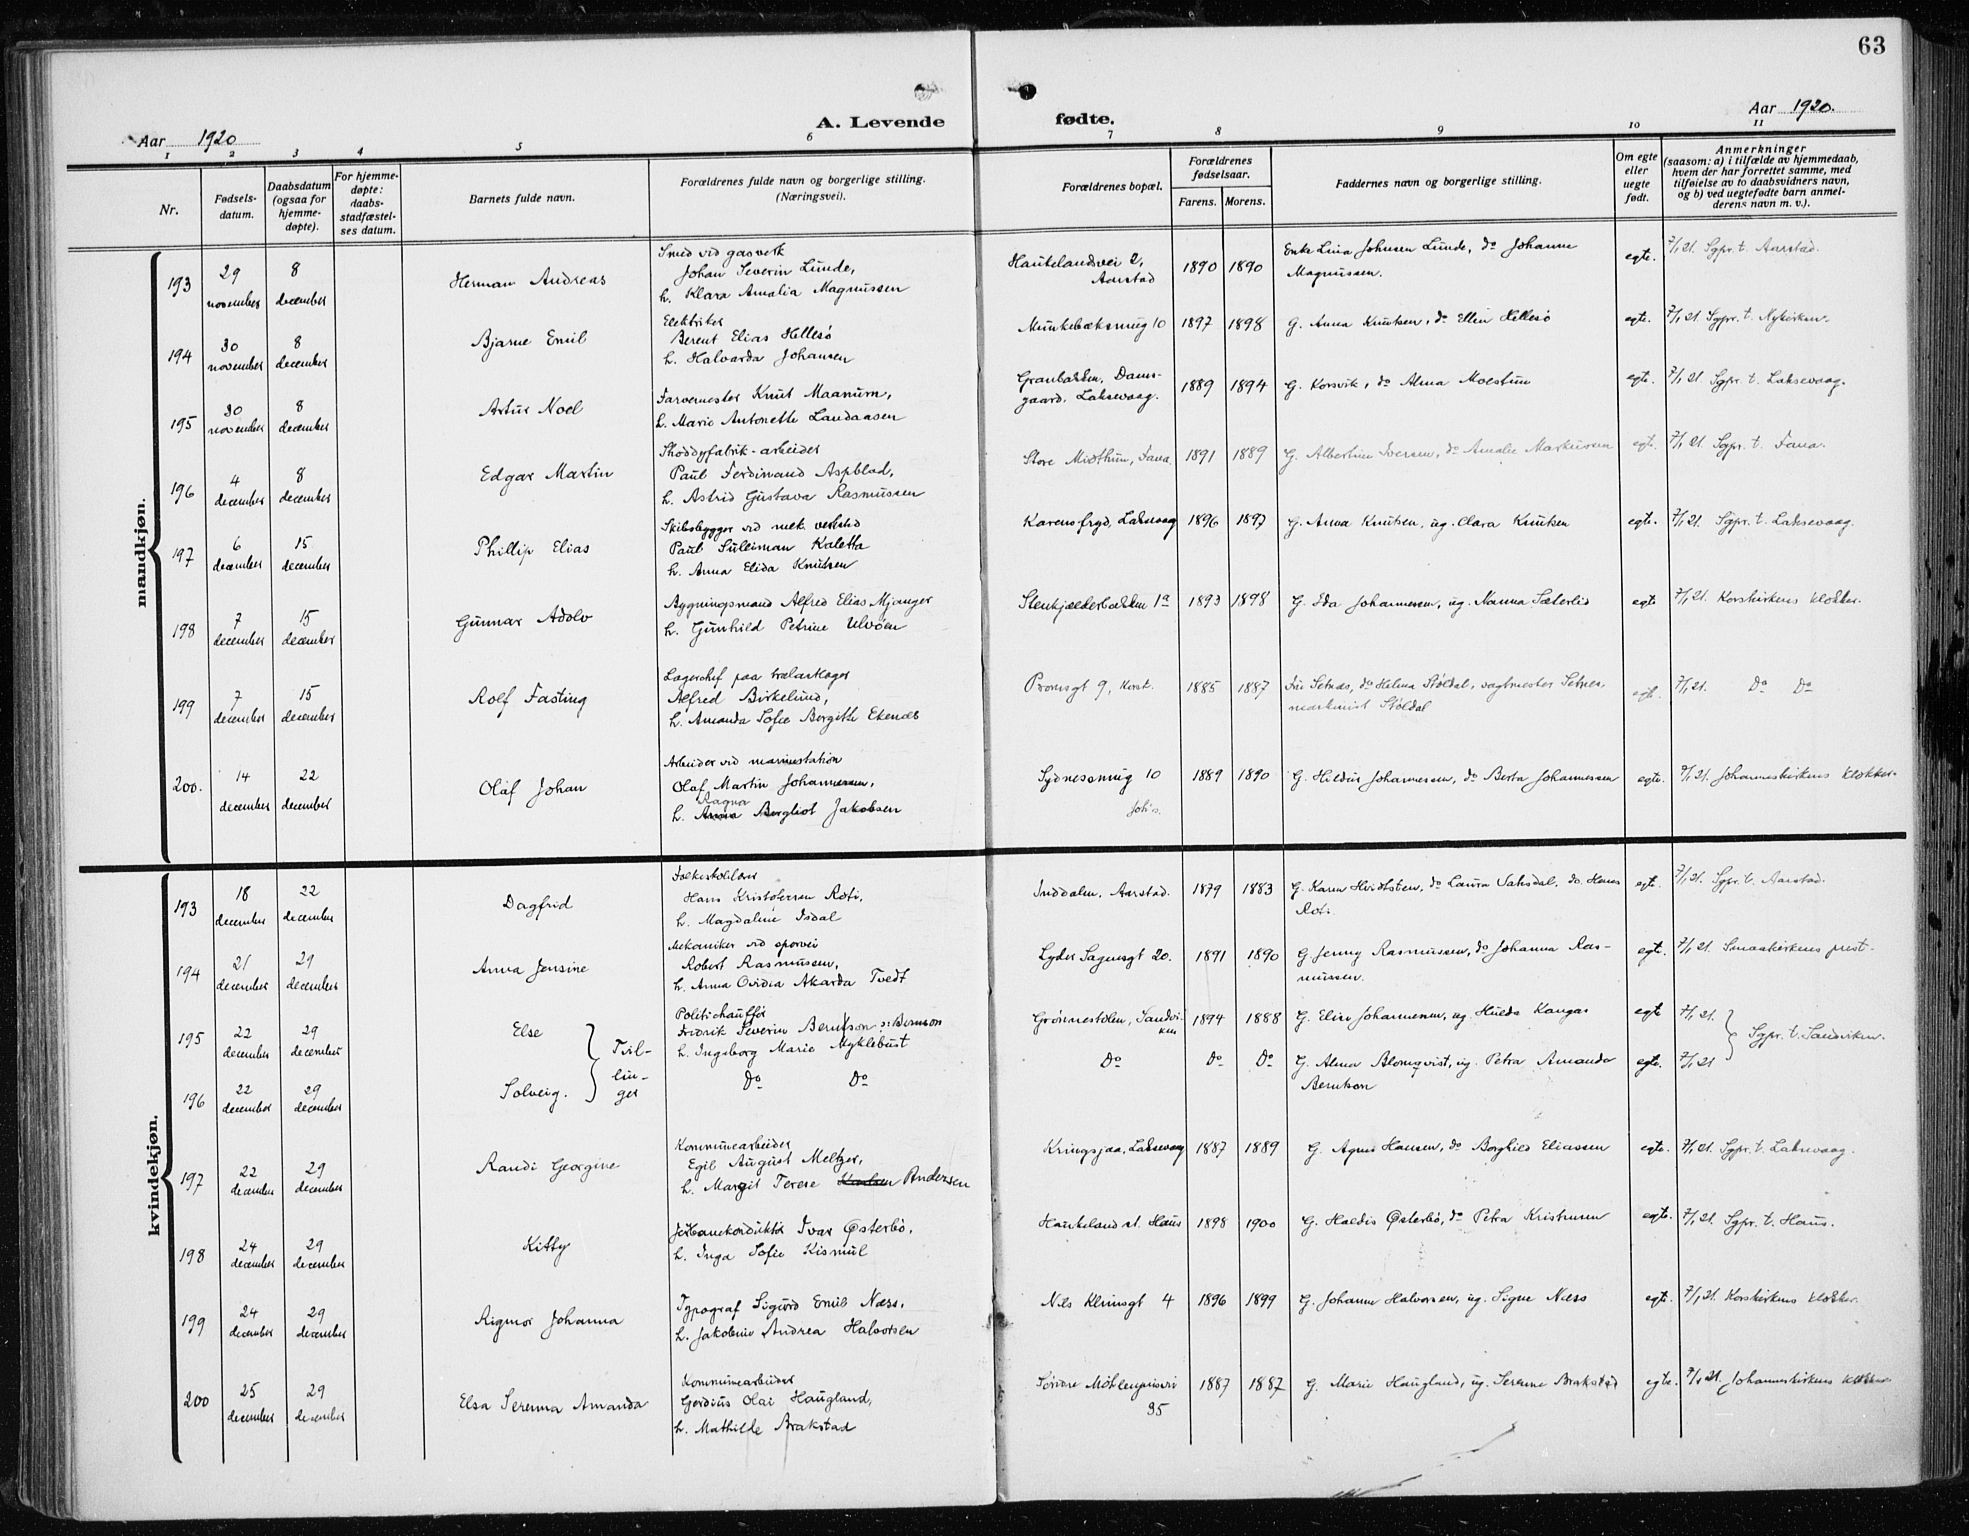 63
A. Levende fødte.
Aar 1920
Aar 1920.
1 2 3 4 5 6 7 8 9 10 11
Nr.
Fødsels-
datum.
Daabsdatum
(ogsaa for
hjemme-
døpte).
For hjemme-
døpte:
daabs-
stadfæstel-
ses datum.
Barnets fulde navn.
Forældrenes fulde navn og borgerlige stilling.
(Næringsvei).
Forældrenes bopæl.
Forældrenes
fødselsaar.
Farens. Morens.
Faddernes navn og borgerlige stilling.
Om egte
eller
uegte
født.
Anmerkninger
(saasom: a) i tilfælde av hjemmedaab,
hvem der har forrettet samme, med
tilføielse av to daabsvidners navn,
og b) ved uegtefødte barn anmel-
derens navn m. v.).
mandkjøn.
193 29 november 8 december Herman Andreas
Smed vid gasverk
Johan Severin Lunde,
h. Klara Amalia Magnussen
Haukelandsvei 2,
Aarstad
1890 1890
Enke Lina Johnsen Lunde, do Johanne
Magnussen.
egte. 7/1 21. Sgpr. t. Aarstad.
194 30 november 8 december Bjarne Emil
Elektriker
Berent Elias Hellesø
h. Halvarda Johansen
Munkebæksmug 10 1897 1898 G. Anna Knutsen, do Ellin Hellesø egte. 7/1 21. Sgpr. t. Nykirken.
195 30 november 8 december Artur Noel
Farvermester Knut Maanum,
h. Marie Antonette Landaasen
Granbakken, Dams-
gaard, Laksevaag.
1889 1894 G. Korsvik, do Alma Moestue egte. 7/1 21 Sgpr. t. Laksevaag.
196 4 december 8 december Edgar Martin
Shoddyfabrik-arbeider
Paul Ferdinand Aspblad,
h. Astrid Gustava Rasmussen
Store Midthun, Fana. 1891 1889 G. Albertine Iversen, do Amalie Markussen egte. 7/1 21. Sgpr. t. Fana.
197 6 december 15 december Phillip Elias
Skibsbygger vid mek. verksted
Paul Suleiman Kaletta
h. Anna Elida Knutsen
Karensfryd, Laksevaag 1896 1897 G. Anna Knutsen, ug. Clara Knutsen egte. 7/1 21. Sgpr. t. Laksevaag.
198 7 december 15 december Gunnar Adolv
Bygningsmand Alfred Elias Mjanger
h. Gunhild Petrine Ulvøen
Stenkjælderbakken 1a 1893 1898 G. Ida Johannesen, ug. Nanna Sæterlid egte 7/1 21. Korskirkens klokker.
199 7 december 15 december Rolf Fasting
Lagerchef paa trælastlager
Alfred Birkelund,
h. Amanda Sofie Bergitte Ekenæs
Promsgt 9, Korsk. 1885 1887
Fru Setnes, do Helena Støldal, vagtmester Setnes,
maskinist Støldal
egte. 7/1 21. Do Do
200. 14 december 22 december Olaf Johan
Arbeider vid marinestation
Olaf Martin Johannessen,
Ragna
h. Anna Bergliot Jakobsen
Sydnessmug 10
Joh's.
1889 1890 G. Hildur Johannessen, do Berta Johannessen egte. 7/1 21. Johanneskirkens klokker.
kvindekjøn.
193 18 december 22 december Dagfrid
Folkeskolelærer
Hans Kristofersen Roti,
h. Magdalene Isdal
Inddalen, Aarstad. 1879 1883
G. Karen Hvidtsten, do Laura Vaksdal, do. Hans
Roti
egte. 7/1 21. Sgpr. t. Aarstad.
194 21 december 29 december Anna Jensine
Mekaniker vid sporvei
Robert Rasmussen,
h. Anna Ovidia Akarda Tvedt
Lyder Sagensgt 20. 1891 1890
G. Jenny Rasmussen, do Johanna Ras-
mussen.
egte. 7/1 21. Smaakirkens prest-
195 22 december 29 december Else
Tvil-
lin-
ger
Politichauffør
Fredrik Severin Berntson : Bernson
h. Ingeborg Marie Myklebust
Grønnestolen, Sandvi-
ken
1894 1888 G. Elise Johannesen, ug. Hulda Kangas egte 7/1 21. Sgpr. t. Sandviken.
196 22 december 29 december Solveig.
Do Do
Do Do Do
G. Alma Blomqvist, ug. Petra Amanda
Berntson
egte. 7/1 21
197 22 december 29 december Randi Georgine
Kommunearbeider
Egil August Meltzer,
h. Margit Terese Karlsen Andersen
Kringsjaa, Laksevaag 1887 1889 G. Agnes Hansen, do Borghild Eliassen egte. 7/1 21. Sgpr. t. Laksevaag.
198 24 december 29 december Kitty
Jernbanekonduktør Ivar Østerbø,
h. Inga Sofie Kismul
Haukeland st. Haus 1898 1900 G. Haldis Østerbø, do Petra Kristensen egte. 7/1 21. Sgpr. t. Haus.
199 24 december 29 december Rigmor Johanna
Typograf Sigurd Emil Næss,
h. Jakobine Andrea Halvorsen
Nils Klimsgt 4 1896 1899 G. Johanne Halvorsen, ug. Signe Næss egte. 7/1 21. Korskirkens klokker.
200 25 december 29 december Elsa Serenna Amanda
Kommunearbeider
Gerdius Olai Haugland,
h. Mathilde Brakstad
Søndre Møhlenprisvei
35
1887 1887 G. Marie Haugland, ug. Serenne Brakstad egte. 7/1 21. Johanneskirkens klokker